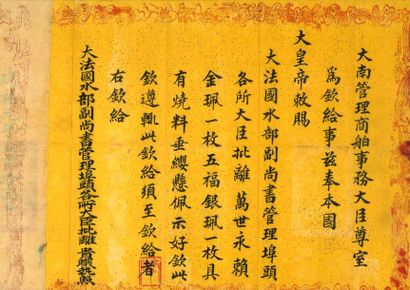 大南管理商舶事務大臣尊室
為欽給事茲奉本國
大皇帝敕賜
大法國水部副尚書管理埠頭
各所大臣批離萬世永賴
金珮一枚五福銀珮一枚具
有燒料垂纓懸佩示好欽此
欽遵輒此欽給須至欽給者
右欽給
大法國水部副尚書管理埠頭各所大臣批離貴職執照